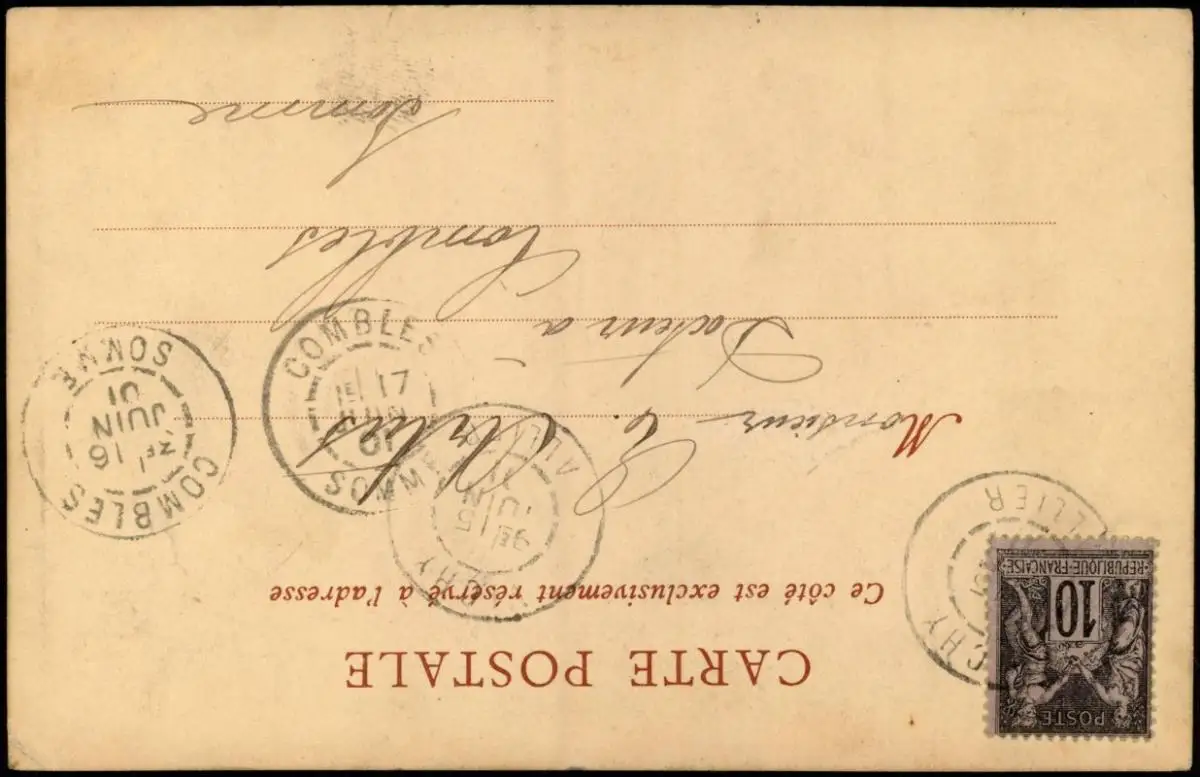 CARTE POSTALE
Ce côté est exclusivement réservé à l'adresse
Monsieur E.
Docteur a
Combles
Somme
POSTE
10
RÉPUBLIQUE-FRANÇAISE
ALLIER
6E 15 JUIN
ALLIER
COMBLES
1E 17 JUIN 01
SOMME
COMBLES
3E 16 JUIN 01
SOMME